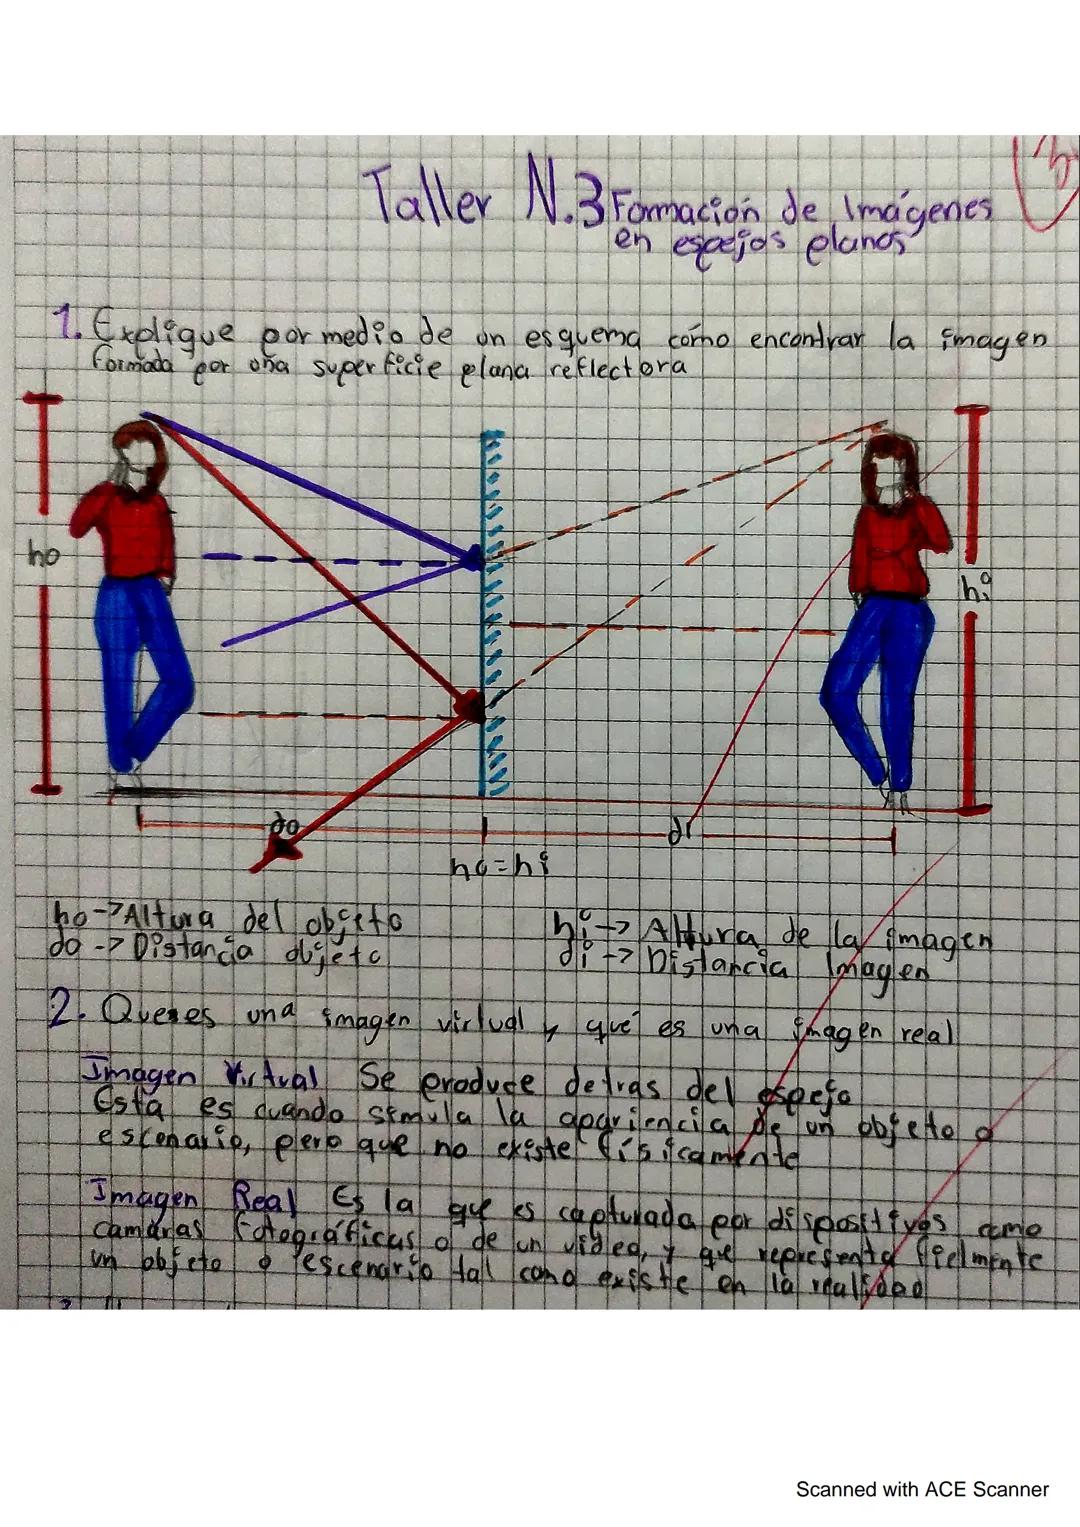 Taller N.3 Formación de Imágenes
en espejos planos
1. Explique por medio de un esquema cómo encontrar la imagen
formada por una superficie plana reflectora
ho
hi
do
di
ho=hi
ho->Altura del objeto
hi-> Altura de la imagen
do -> Distancia objeto
di -> Distancia Imagen
2. Que es una imagen virtual y qué es una imagen real
Imagen Virtual Se produce detras del espejo
Esta es cuando simula la apariencia de un objeto o
escenario, pero que no existe físicamente
Imagen Real Es la que es capturada por dispositivos como
camáras fotográficas o de un video, y que representa fielmente
un objeto o escenario tal como existe en la realidad
Scanned with ACE Scanner